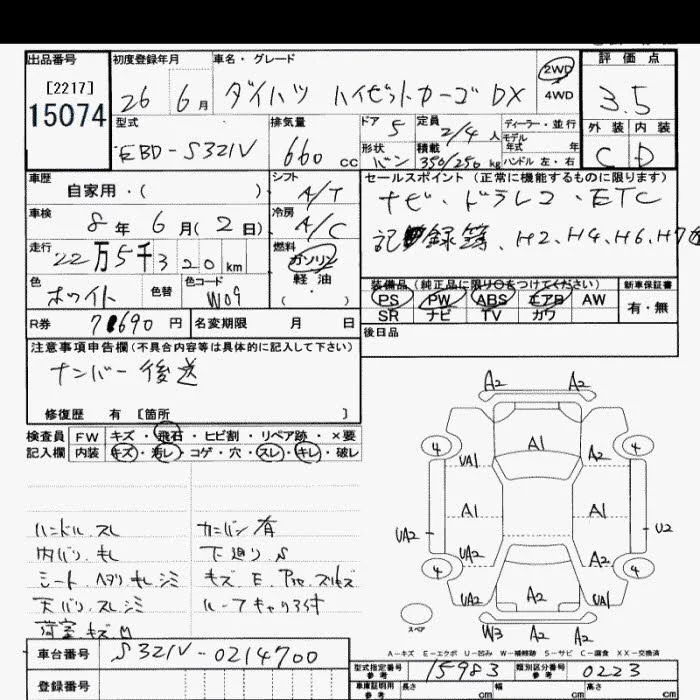 出品番号
[2217]
15074
初度登録年月
26 6月
車名・グレード
ダイハツ ハイゼットカーゴ DX
2WD
4WD
評価点
3.5
外装 内装
C D
型式
EBD-S321V
排気量
660 cc
ドア 5
形状 バン
定員 2/4 人
積載 350/250 kg
ディーラー・並行
モデル年式 年
ハンドル 左・右
車歴
自家用・( )
シフト
A/T
車検
8年 6月(2日)
冷房
A/C
走行
22万5千320km
燃料
ガソリン
軽油
( )
色
ホワイト
色替
色コード
W09
セールスポイント (正常に機能するものに限ります)
ナビ・ドラレコ・ETC
記録簿、H2、H4、H6、H7
装備品(純正品に限り○をつけてください)
PS PW ABS エアB AW
SR ナビ TV カワ
新車保証書
有・無
R券 71690円
名変期限 月 日
後日品
注意事項申告欄(不具合内容等は具体的に記入して下さい)
ナンバー後送
修復歴 有 [箇所 ]
検査員記入欄
FW キズ・飛石・ヒビ割・リペア跡・×要
内装 キズ・汚レ・コゲ・穴・スレ・キレ・破レ
ハンドル.スレ
内バリ.キレ
シート.ヘタリ キレ シミ
天バリ.スレ.シミ
荷室 キズ.M
カンバン有
下廻り S
ルーフキャリア付
A2 A2
4 A1 4
UA1 A2
A1 A1
UA2 U2
UA2 A2
4 4
UA2 A2 UA1
スペア
W3 A2
A-キズ E-エクボ U-凹み W-補修跡 S-サビ C-腐食 XX-交換済
車台番号 S321V-0214700
登録番号
型式指定番号 参考 15983
類別区分番号 参考 0223
車庫証明用 参考 長さ cm 幅 cm 高さ cm